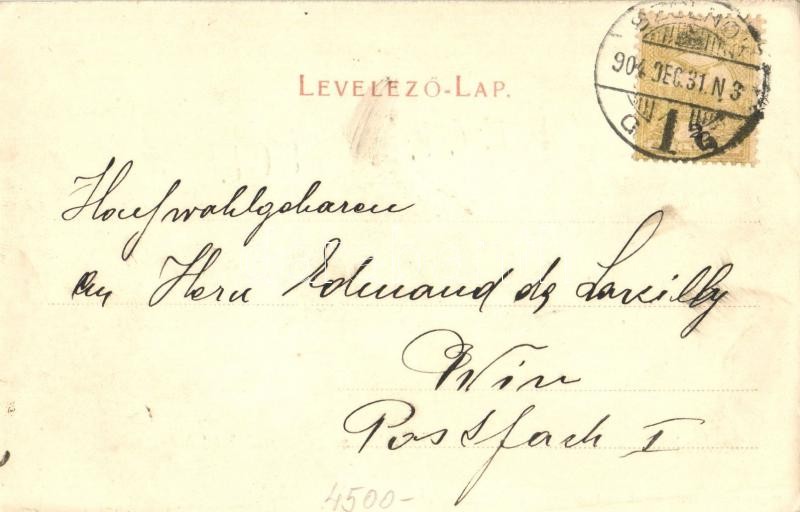 SZOLNOK
904 DEC. 31. N 3
D 1
LEVELEZŐ-LAP.
Hochwohlgeboren
an Herrn Edmund de
Wien
Postfach I
4500-